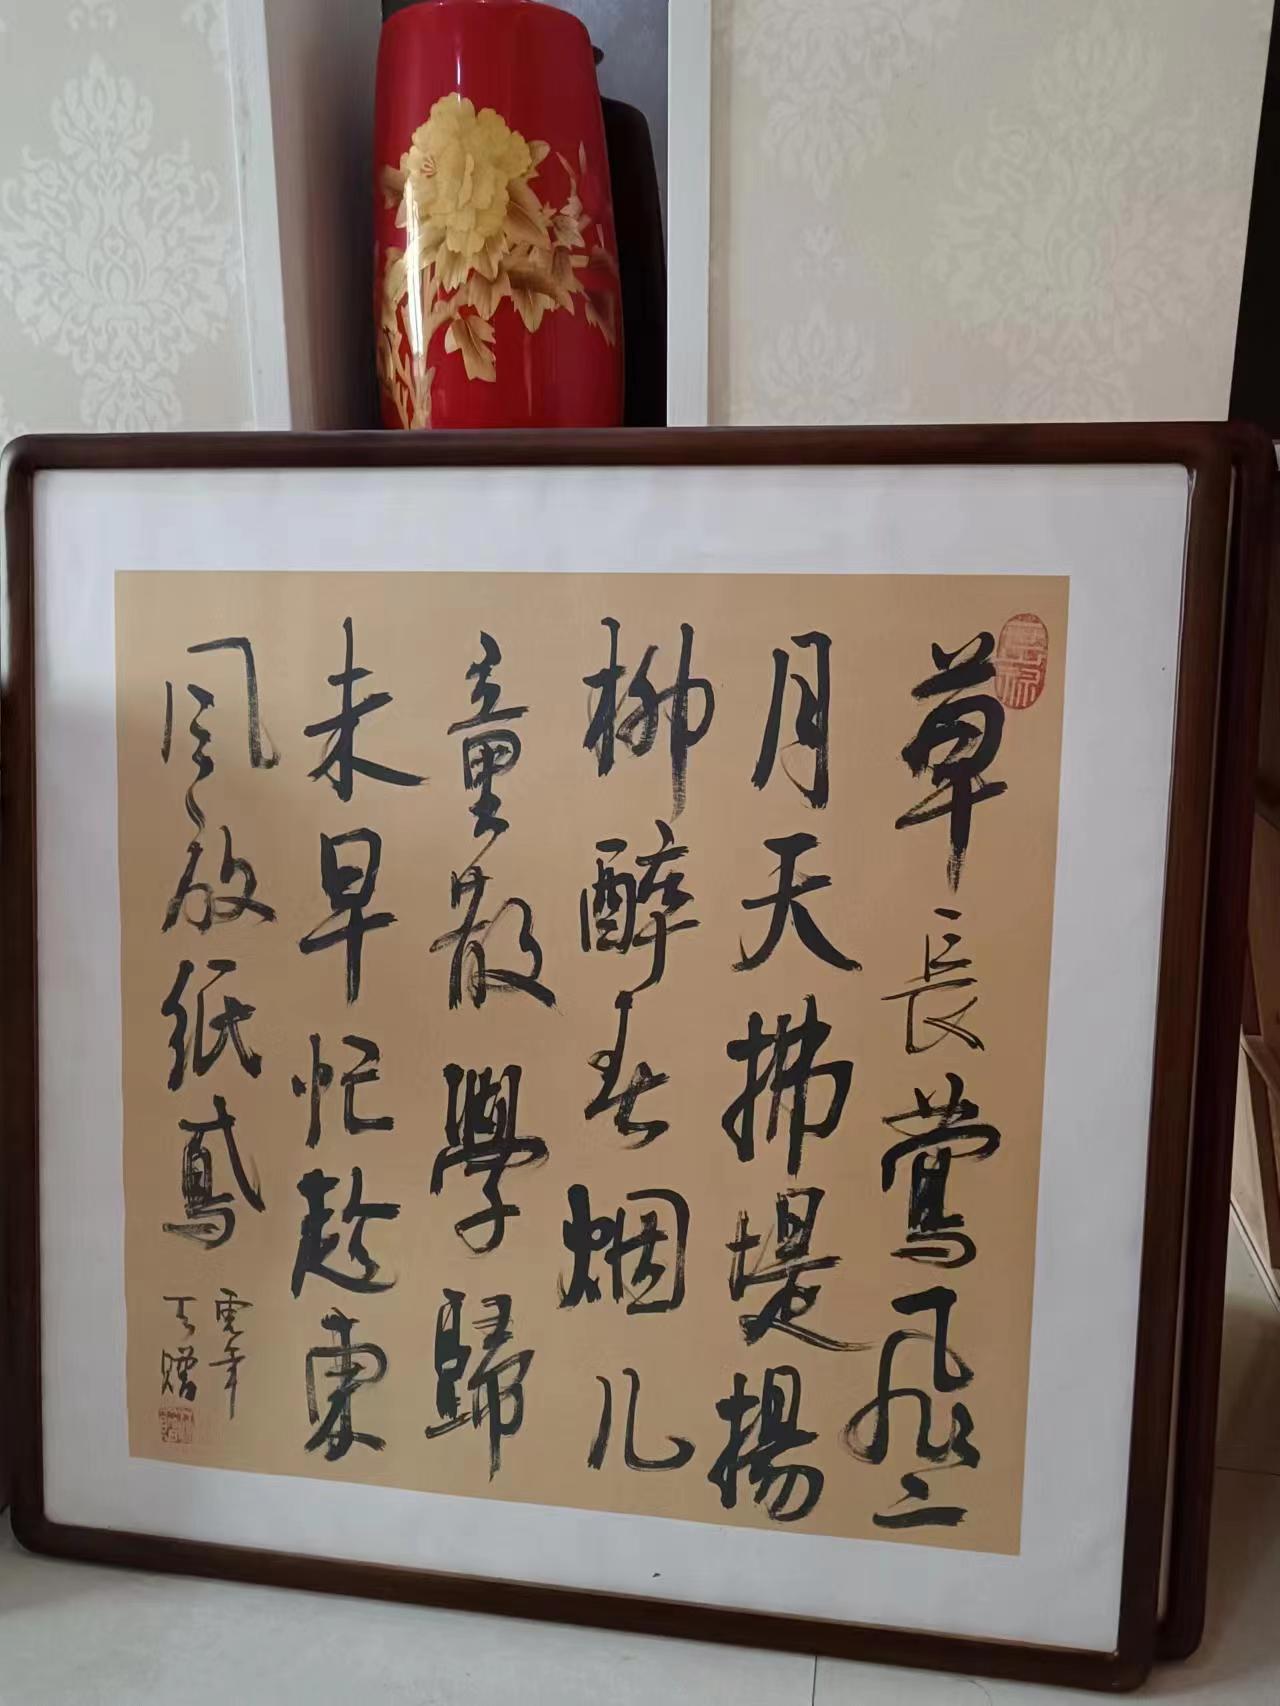 草長鶯飛二
月天拂堤楊
柳醉春烟儿
童散學歸
来早忙趁東
風放紙鳶
虎年
贈